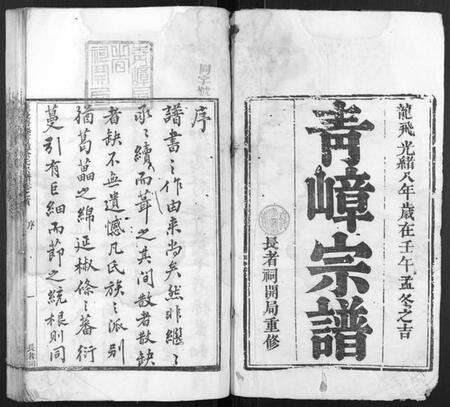 龍飛光緒八年歲在壬午孟冬之吉
青嶂宗譜
長者祠開局重修
序
譜書之作由来尚矣然非繼之
承之續而葺之其間散者散缺
者缺不無遺憾凡氏族之派别
猶葛藟之綿延椒條之蕃衍
蔓引有巨細而節之統根則同
序
一